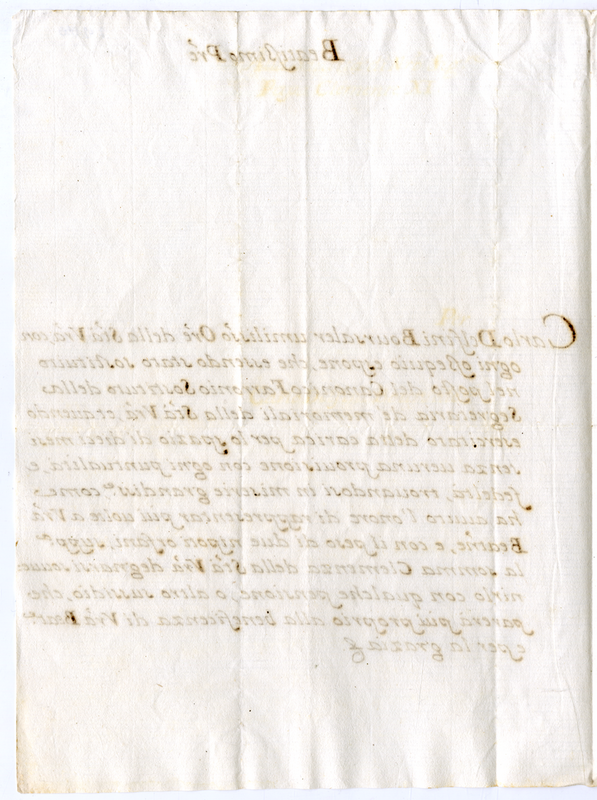 Beatissimo Prē
Carlo Delfini Boursaler umilissº Orē della Sta Vrã, con
ogni ossequio espone, che, essendo stato sostituito
nel posto del Canonico Fantonio Sostituto della
Segretaria de memoriali della Sta Vrã, et avendo
esercitato detta carica per lo spazio di dieci mesi
senza veruna provvisione con ogni puntualità, e
fedeltà, trovandosi in miserie grandissᵉ come
ha avuto l'onore di rappresentar più volte a Vrã
Beatne, e con il peso di due nipoti orfani, suppᶜᵃ
la somma Clemenza della Sta Vrã degnarsi sovve
nirlo con qualche pensione, o altro sussidio, che
parerà più proprio alla beneficenza di Vrã Beatⁿᵉ
e per la grazia &